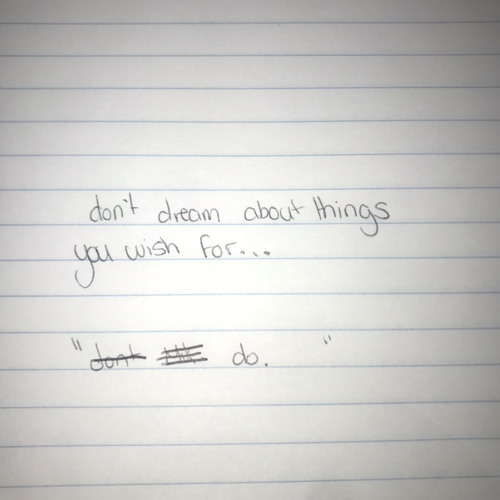 don't dream about things
you wish for...
" dont do. "